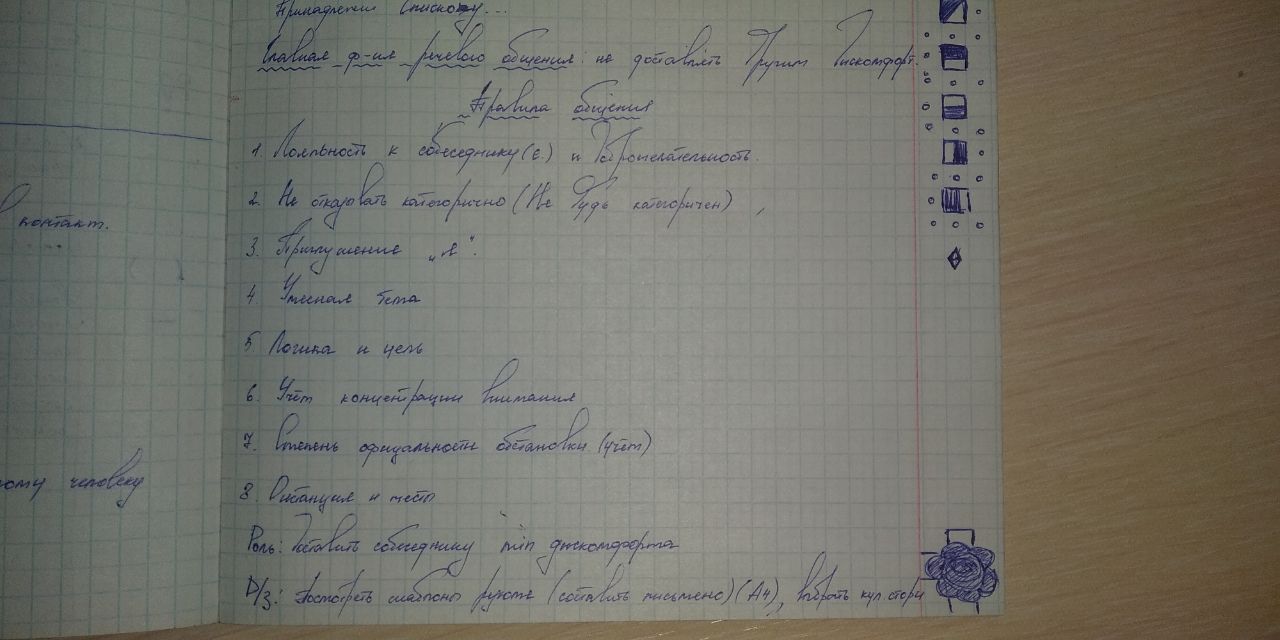 Принадлежи списку...
Главная ф-ия речевого общения: не доставлять другим дискомфорт.
Правила общения
1. Лояльность к собеседнику(е) и доброжелательность.
2. Не отказовать категорично (Не будь категоричен)
в контакт.
3. Приглушение „я".
4. Уместная тема
5. Логика и цель
6. Учёт концентрации внимания
7. Степень официальности обстановки (учёт)
ому человеку
8. Дистанция и жесты
Роль: доставить собеседнику min дискомфорта
D/з: посмотреть шаблоны резюме (составить письмено) (А4), выбрать кул стори